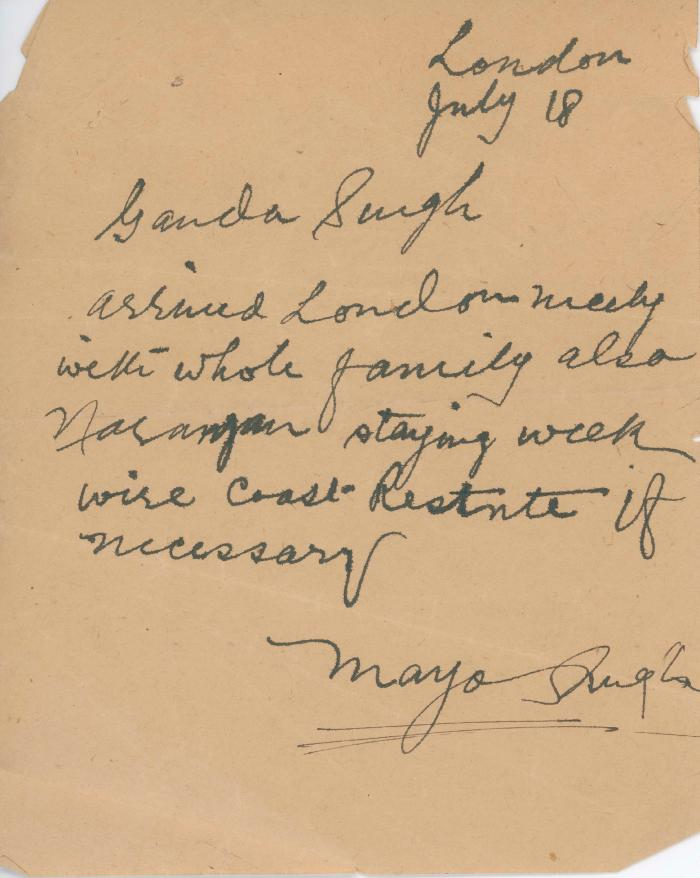 London
July 18
Ganda Singh
arrived London nicely
with whole family also
Naranjan staying week
wire Coast if
necessary
Mayo Singh